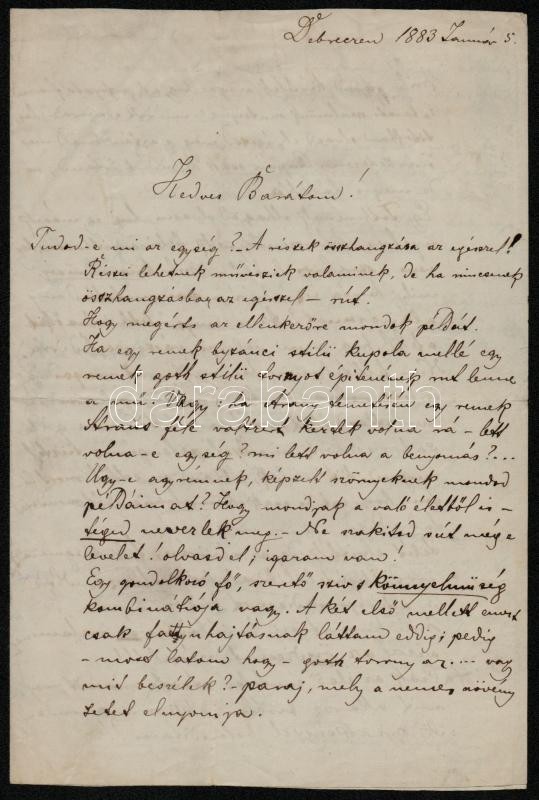 Debreczen 1883 Január 5.
Kedves Barátom!
Tudod-e mi az egység? - A részek összhangzása az egészszel!
Részei lehetnek művésziek valaminek, de ha nincsenek
összhangzásban az egészszel - rút.
Hogy megérts az ellenkezőre mondok példát.
Ha egy remek byzánci stílű kupola mellé egy
remek goth stílű tornyot építenének rút lenne
a mű. Vagy ha Arany temetésén egy remek
Straus féle valzert kezdek volna rá - lett
volna-e egység? mi lett volna a benyomás?...
Ugy-e agyrémnek, képzelt szörnyeknek mondod
példáimat? Hogy mondjak a való életből is -
téged nevezlek meg. - Ne szakitsd szét még e
levelet! olvasd el; igazam van!
Egy gondolkozó fő, szerető szív s könnyelműség
kombinátiója vagy. A két első mellett emezt
csak fattyuhajtásnak láttam eddig; pedig
- most látom hogy - goth torony az.... vagy
mit beszélek? - paraj, mely a nemes növény
zetet elnyomja.
darabanth